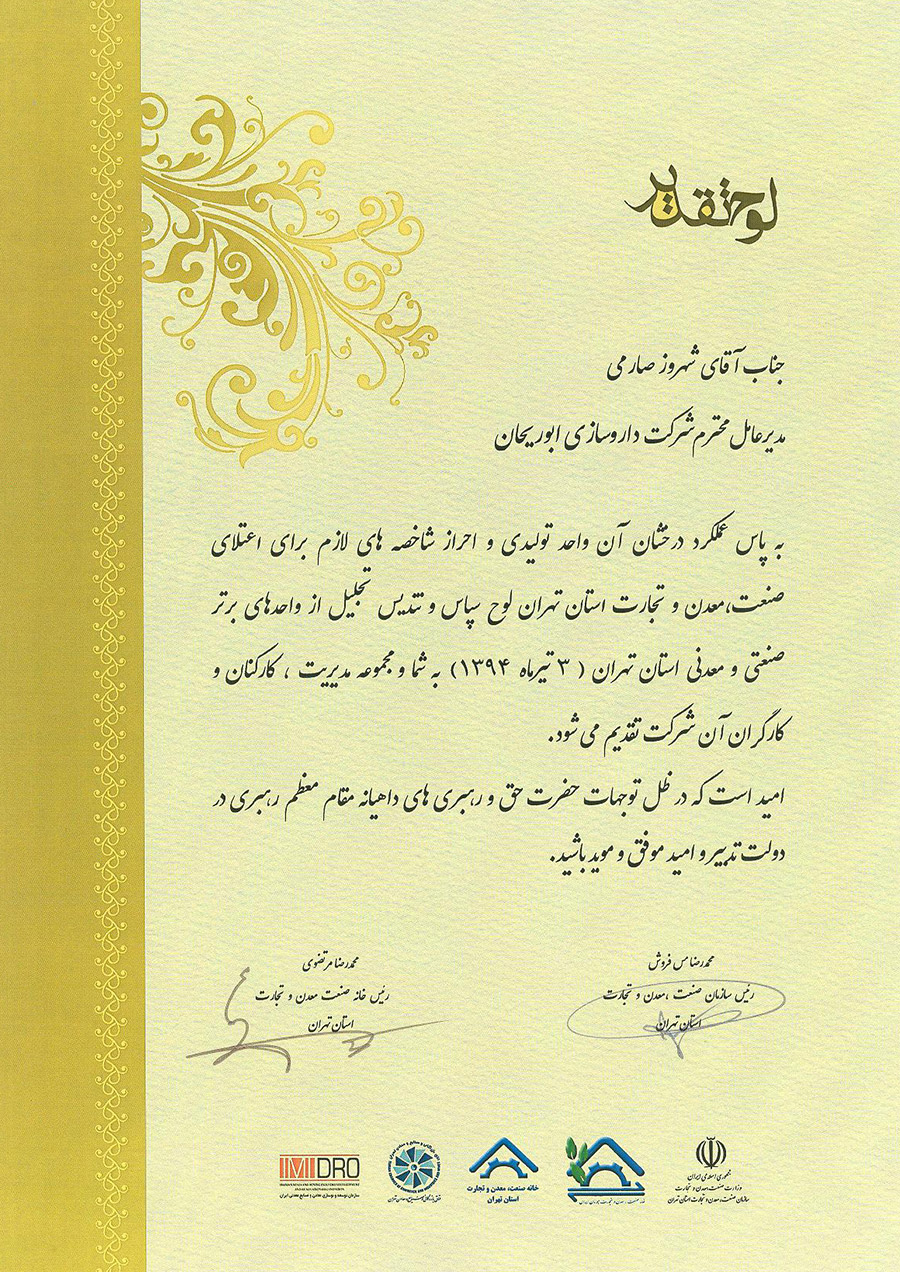 لوح تقدیر
جناب آقای شهروز صارمی
مدیرعامل محترم شرکت داروسازی ابوریحان
به پاس عملکرد درخشان آن واحد تولیدی و احراز شاخصه های لازم برای اعتلای
صنعت،معدن و تجارت استان تهران لوح سپاس و تندیس تجلیل از واحدهای برتر
صنعتی و معدنی استان تهران ( ۳ تیرماه ۱۳۹۴) به شما و مجموعه مدیریت ، کارکنان و
کارگران آن شرکت تقدیم می شود.
امید است که در ظل توجهات حضرت حق و رهبری های داهیانه مقام معظم رهبری در
دولت تدبیر و امید موفق و موید باشید.
محمدرضا مس فروش
رئیس سازمان صنعت ،معدن و تجارت
استان تهران
محمدرضا مرتضوی
رئیس خانه صنعت معدن و تجارت
استان تهران
جمهوری اسلامی ایران
وزارت صنعت،معدن و تجارت
سازمان صنعت،معدن و تجارت استان تهران
خانه صنعت، معدن و تجارت
استان تهران
IMIDRO
سازمان توسعه و نوسازی معادن و صنایع معدنی ایران